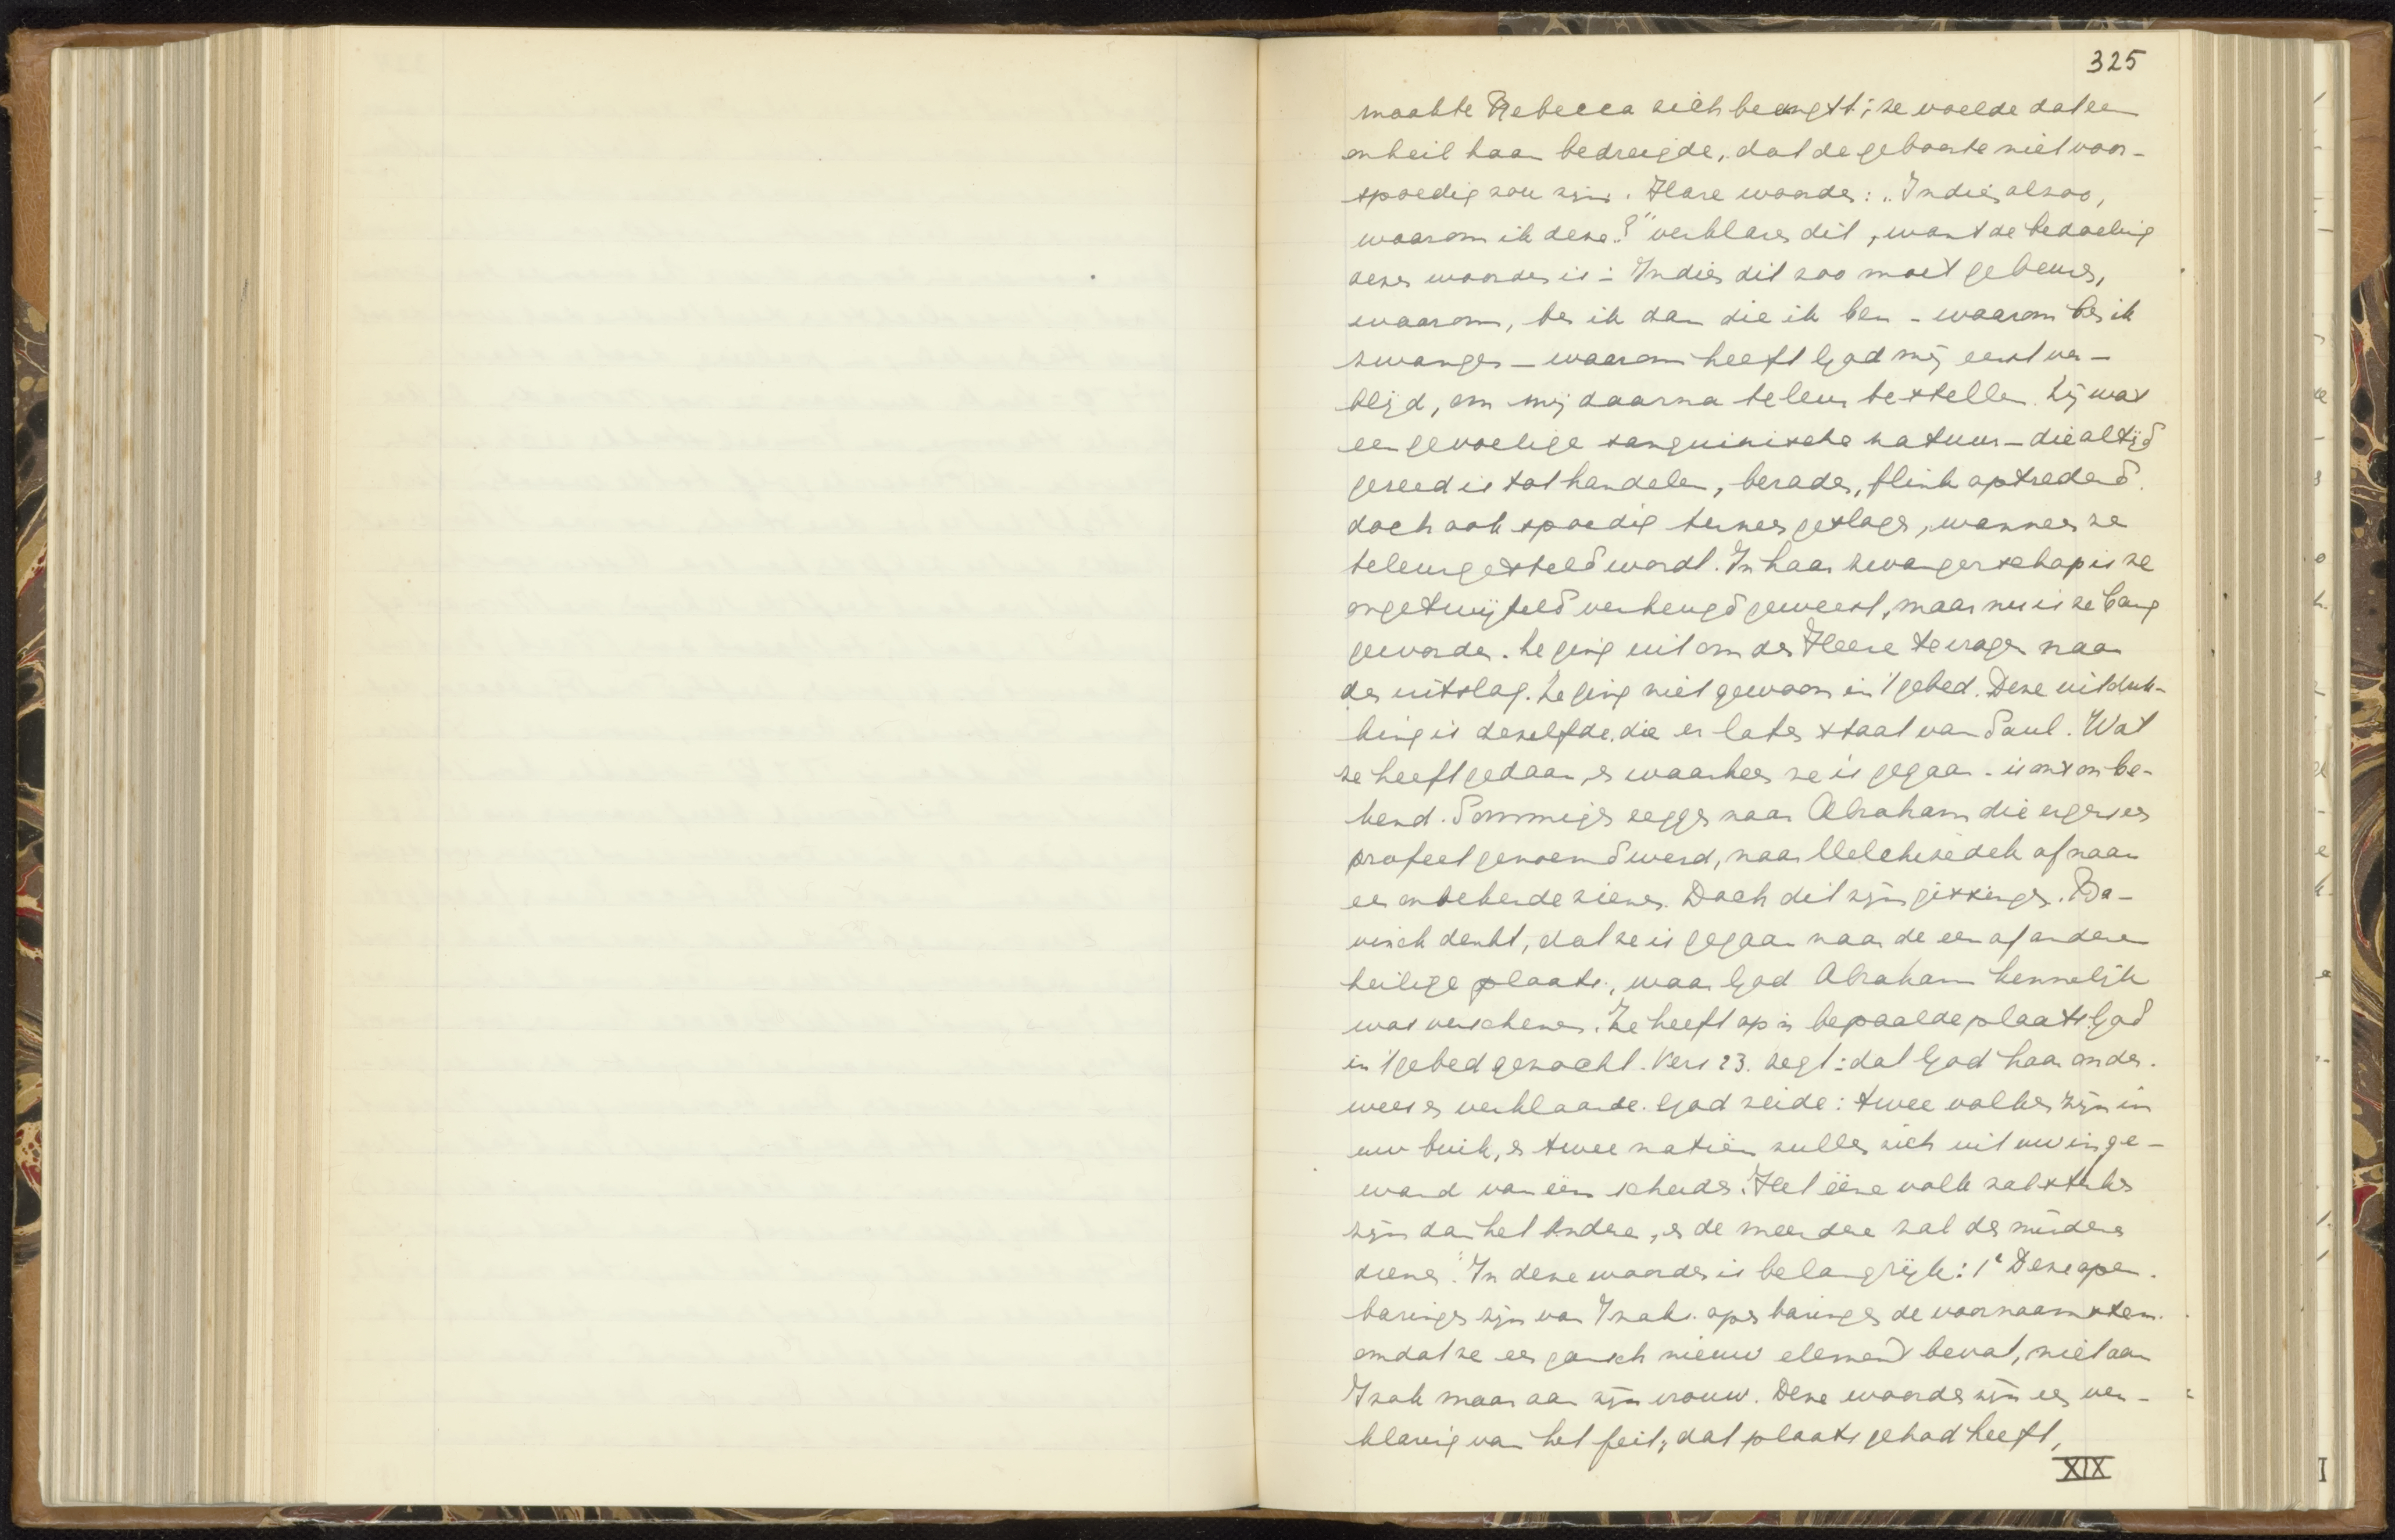 325
maakte Rebecca zich beangst; ze voelde dat een
onheil haar bedreigde, dat de geboorte niet voor-
spoedig zou zijn. Hare woorden: „Indien alzoo,
waarom ik deze?" verklaren dit, want de bedoeling
dezer woorden is: Indien dit zoo moet gebeuren,
waarom, ben ik dan die ik ben – waarom ben ik
zwanger – waarom heeft God mij eerst ver-
blijd, om mij daarna teleur te stellen. Zij was
een gevoelige sanguinische natuur – die altijd
gereed is tot handelen, beraden, flink optredend.
doch ook spoedig terneer geslagen, wanneer ze
teleurgesteld wordt. In haar zwangerschap is ze
ongetwijfeld verheugd geweest, maar nu is ze bang
geworden. Ze ging uit om den Heere te vragen naar
den uitslag. Ze ging niet gewoon in 't gebed. Deze uitdruk-
king is dezelfde, die er later staat van Saul. Wat
ze heeft gedaan, en waarheen ze is gegaan – is ons onbe-
kend. Sommigen zeggen naar Abraham die ergens een
profeet genoemd werd, naar Melchizedek of naar
een onbekende ziener. Doch dit zijn gissingen. Ba-
vinck denkt, dat ze is gegaan naar de een of andere
heilige plaats, waar God Abraham kennelijk
was verschenen. Ze heeft op 'n bepaalde plaats God
in 't gebed gezocht. Vers 23. zegt: dat God haar onder-
wees en verklaarde. God zeide: twee volken zijn in
uw buik, en twee natiën zullen zich uit uw inge-
wand van één scheiden. Het ééne volk zal sterker
zijn dan het andere, en de meerdere zal den mindere
dienen." In deze woorden is belangrijk: 1e Deze open-
baringen zijn van Izak's openbaringen de voornaamsten.
omdat ze een gansch nieuw element bevat, niet aan
Izak maar aan zijn vrouw. Deze woorden zijn een ver-
klaring van het feit, dat plaats gehad heeft,
XIX